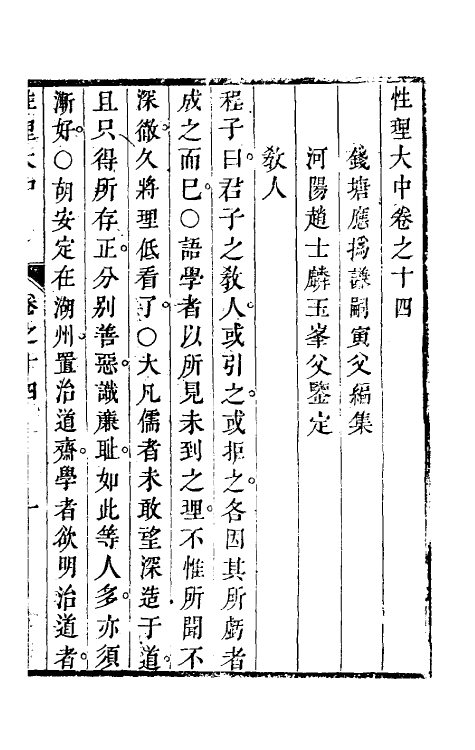 性理大中卷之十四
錢塘應撝謙嗣寅父編集
河陽趙士麟玉峯父鑒定
敎人
程子曰君子之敎人。或引之。或拒之。各因其所虧者
成之而已○語學者以所見未到之理。不惟所聞不
深徹。久將理低看了。○大凡儒者未敢望深造于道。
且只得所存正。分别善惡。識廉耻。如此等人多。亦須
漸好。○胡安定在湖州。置治道齋。學者欲明治道者。
性理大中
卷之十四
一